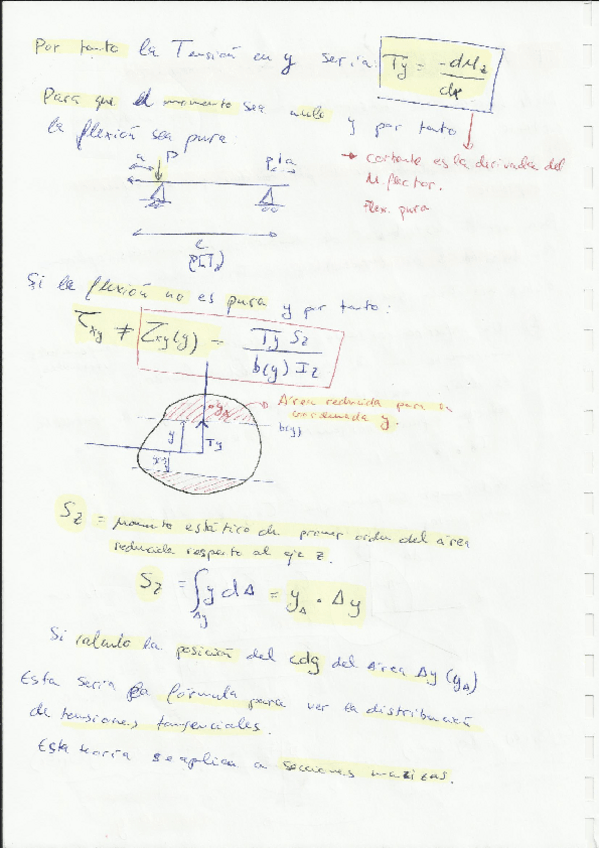 Por tanto la Tensión en y sería: Ty = -dMz/dx
Para que el momento sea nulo y por tanto
la flexión sea pura:
→ cortante es la derivada del
M. flector.
Flex. pura
a P P a
L
Si la flexión no es pura y por tanto:
τxy ≠ τxy(y) = Ty Sz / b(y) Iz
→ Área reducida para la
coordenada y.
b(y)
y Ty
Sz = Momento estático de primer orden del área
reducida respecto al eje z.
Sz = ∫Ay y dA = yA · Ay
Si calculo la posición del cdg del área Ay (yA)
Esta sería la fórmula para ver la distribución
de tensiones tangenciales.
Esta teoría se aplica a secciones macizas.